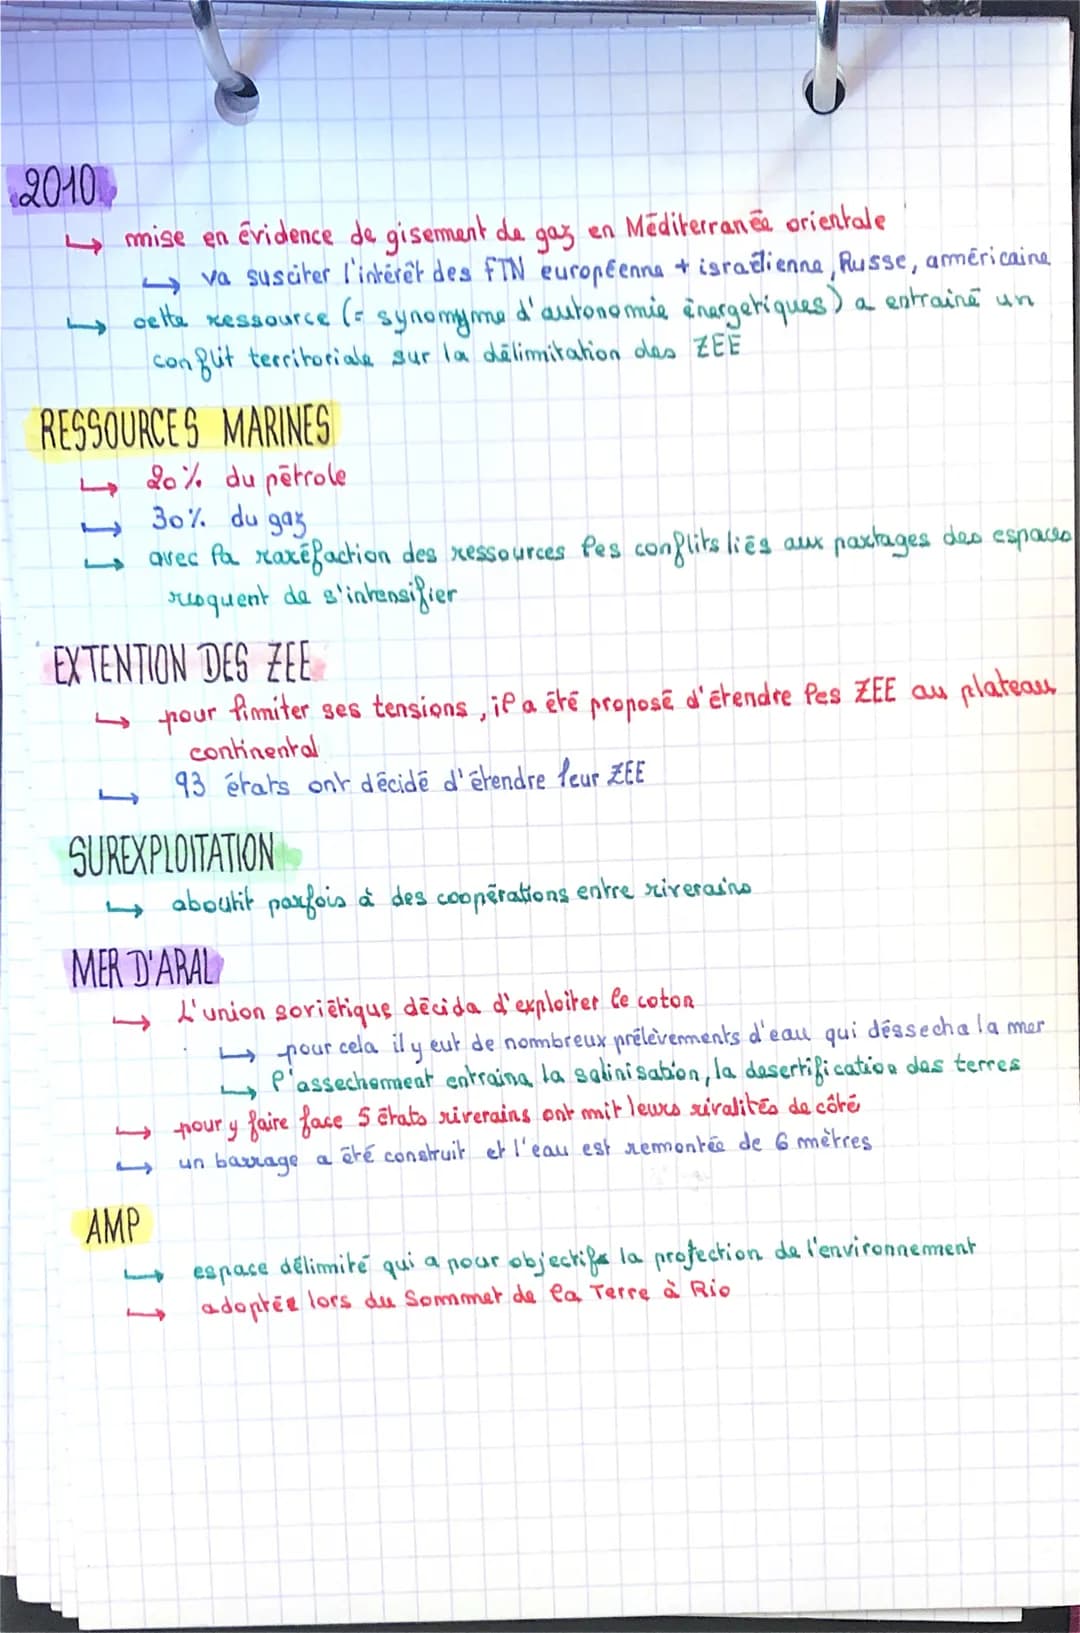 2010
↳ mise en évidence de gisement de gaz en Méditerranée orientale
↳ va susciter l'intérêt des FTN européenne + israélienne, Russe, américaine
↳ cette ressource (= synomyme d'autonomie énergetiques) a entrainé un
conflit territoriale sur la délimitation des ZEE
RESSOURCES MARINES
↳ 20% du pétrole
↳ 30% du gaz
↳ avec la raréfaction des ressources les conflits liés aux partages des espaces
risquent de s'intensifier
EXTENTION DES ZEE
↳ pour limiter ses tensions, il a été proposé d'étendre les ZEE au plateau
continental
↳ 93 états ont décidé d'étendre leur ZEE
SUREXPLOITATION
↳ aboutit parfois à des coopérations entre riverains
MER D'ARAL
↳ L'union soviétique décida d'exploiter le coton
↳ pour cela il y eut de nombreux prélèvements d'eau qui déssecha la mer
↳ l'assechement entraina la salinisation, la desertification des terres
↳ pour y faire face 5 états riverains ont mit leurs rivalités de côté
↳ un barrage a été construit et l'eau est remontée de 6 mètres
AMP
↳ espace délimité qui a pour objectifs la protection de l'environnement
↳ adoptée lors du Sommet de la Terre à Rio